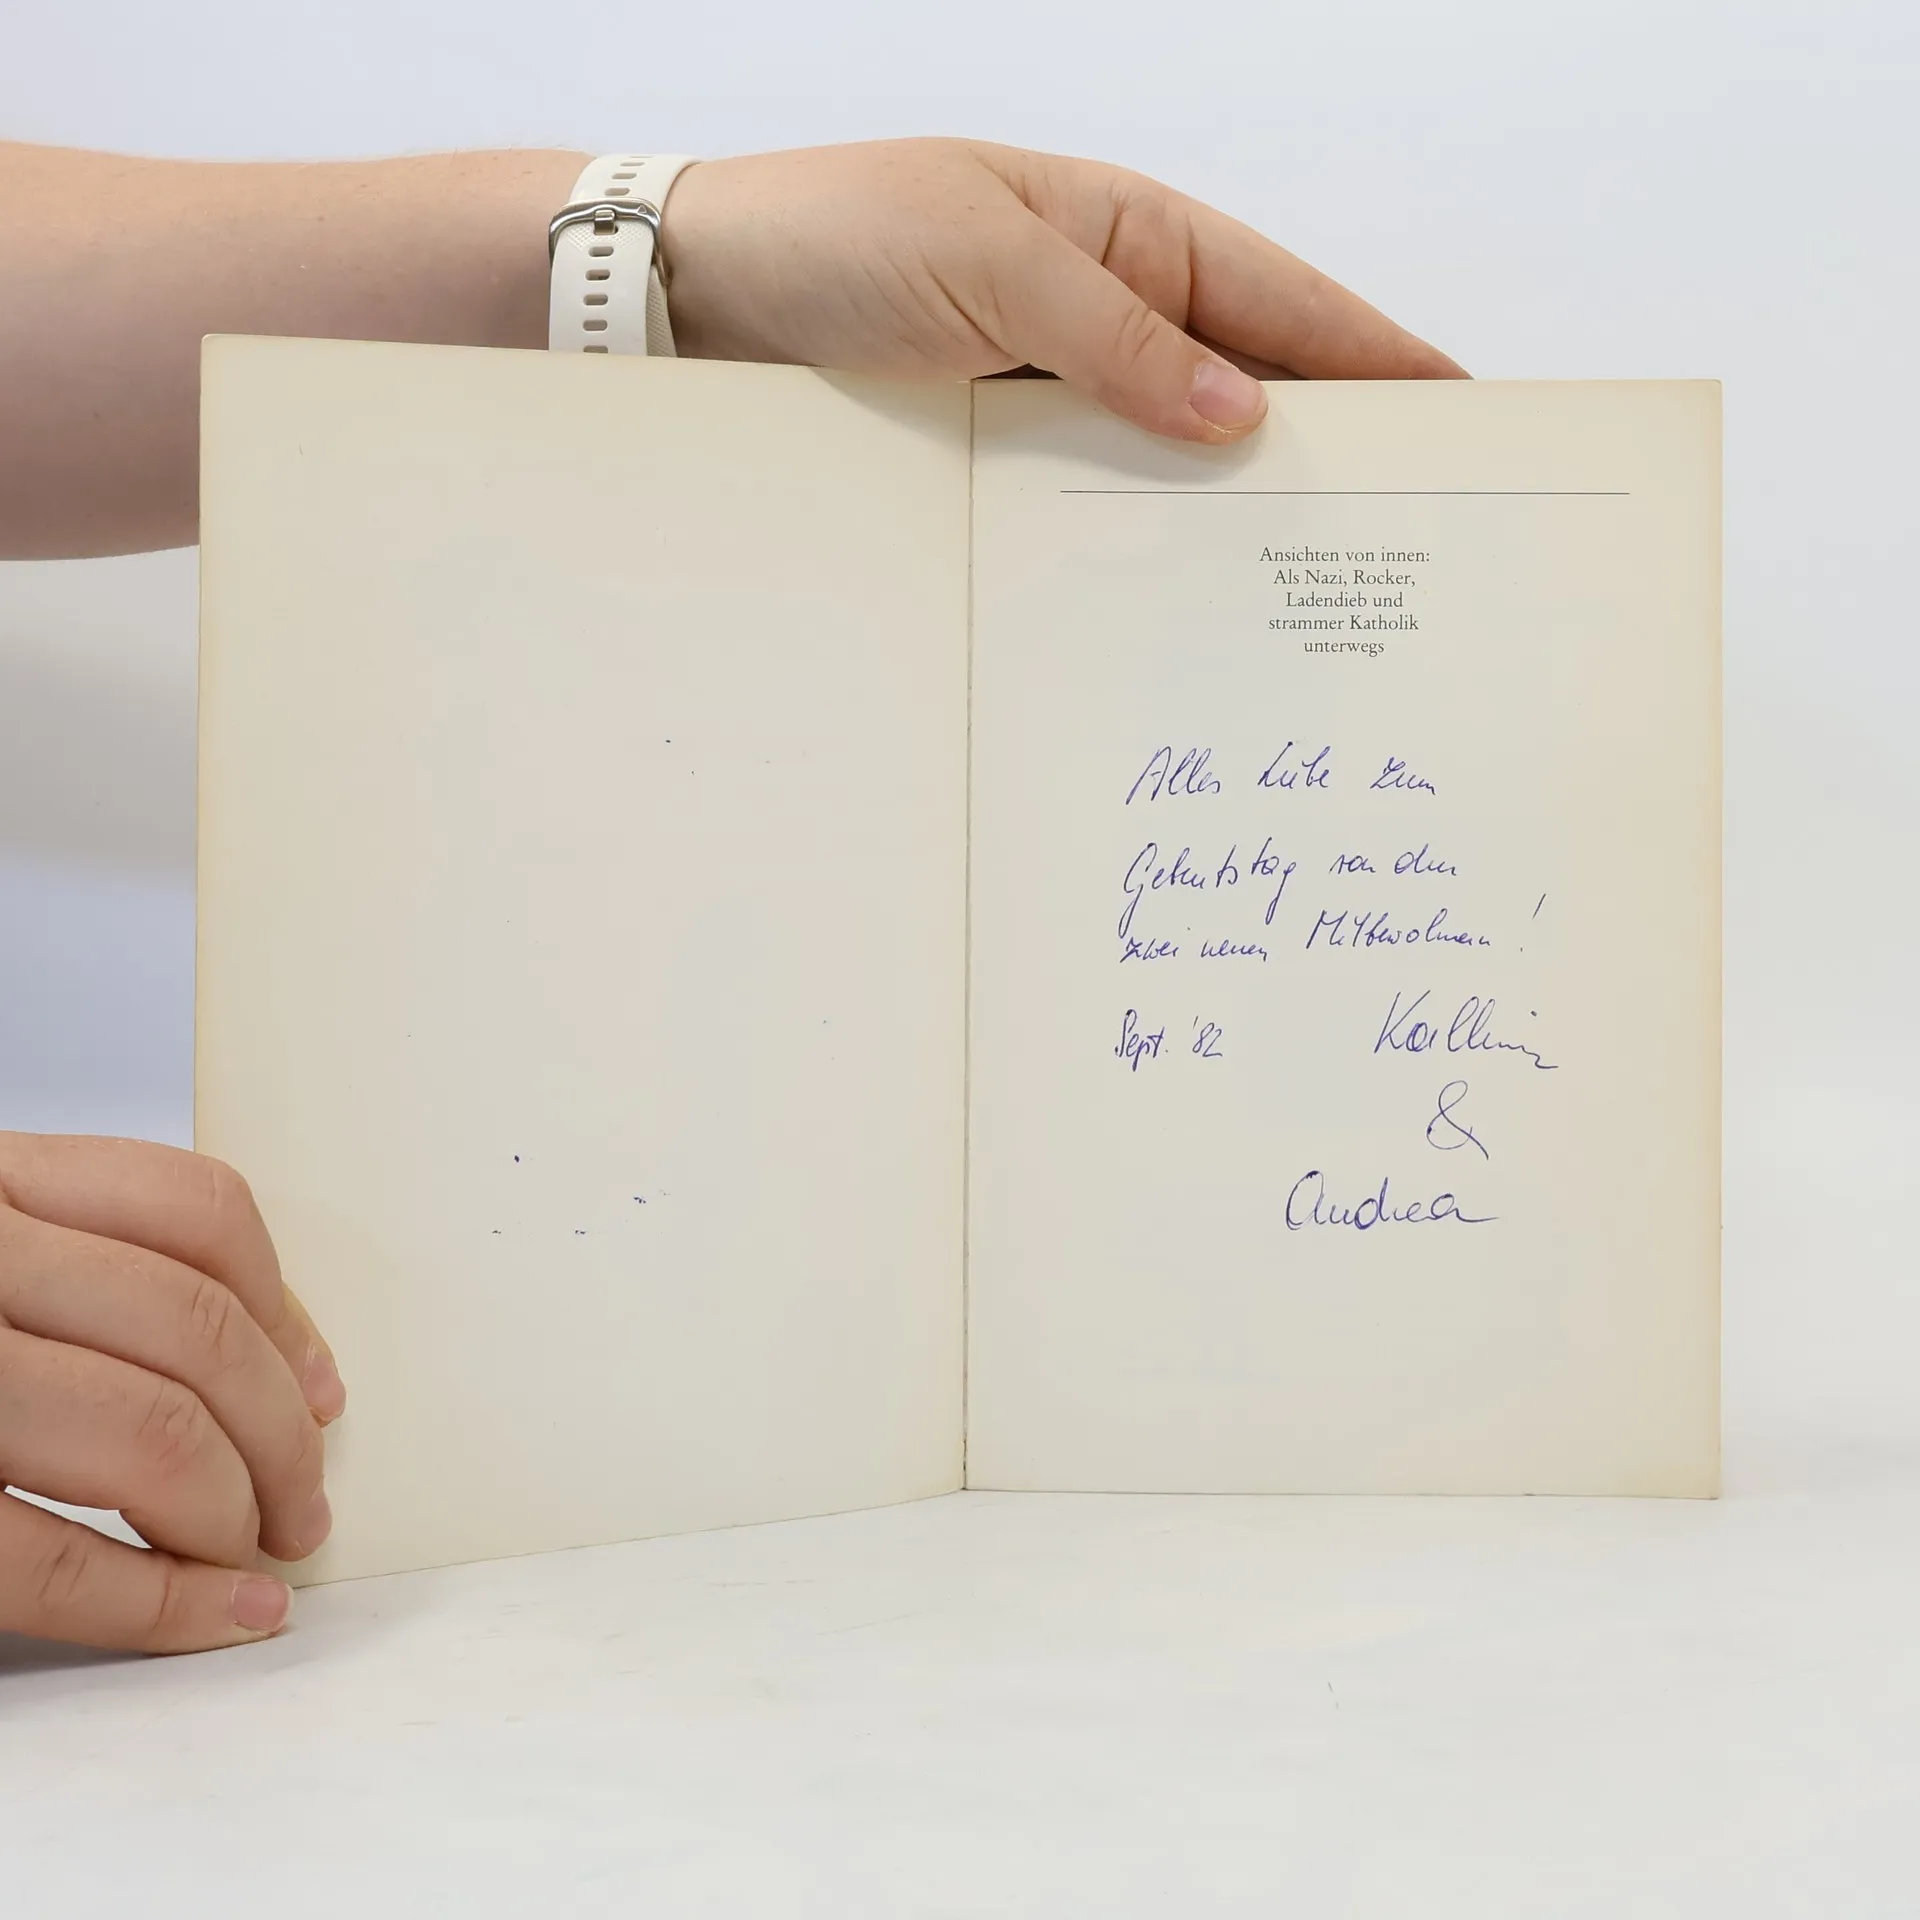 Ansichten von innen:
Als Nazi, Rocker,
Ladendieb und
strammer Katholik
unterwegs
Alles Liebe zum
Geburtstag von den
zwei neuen Mitbewohnern!
Sept. '82 Kallheinz
&
Andrea